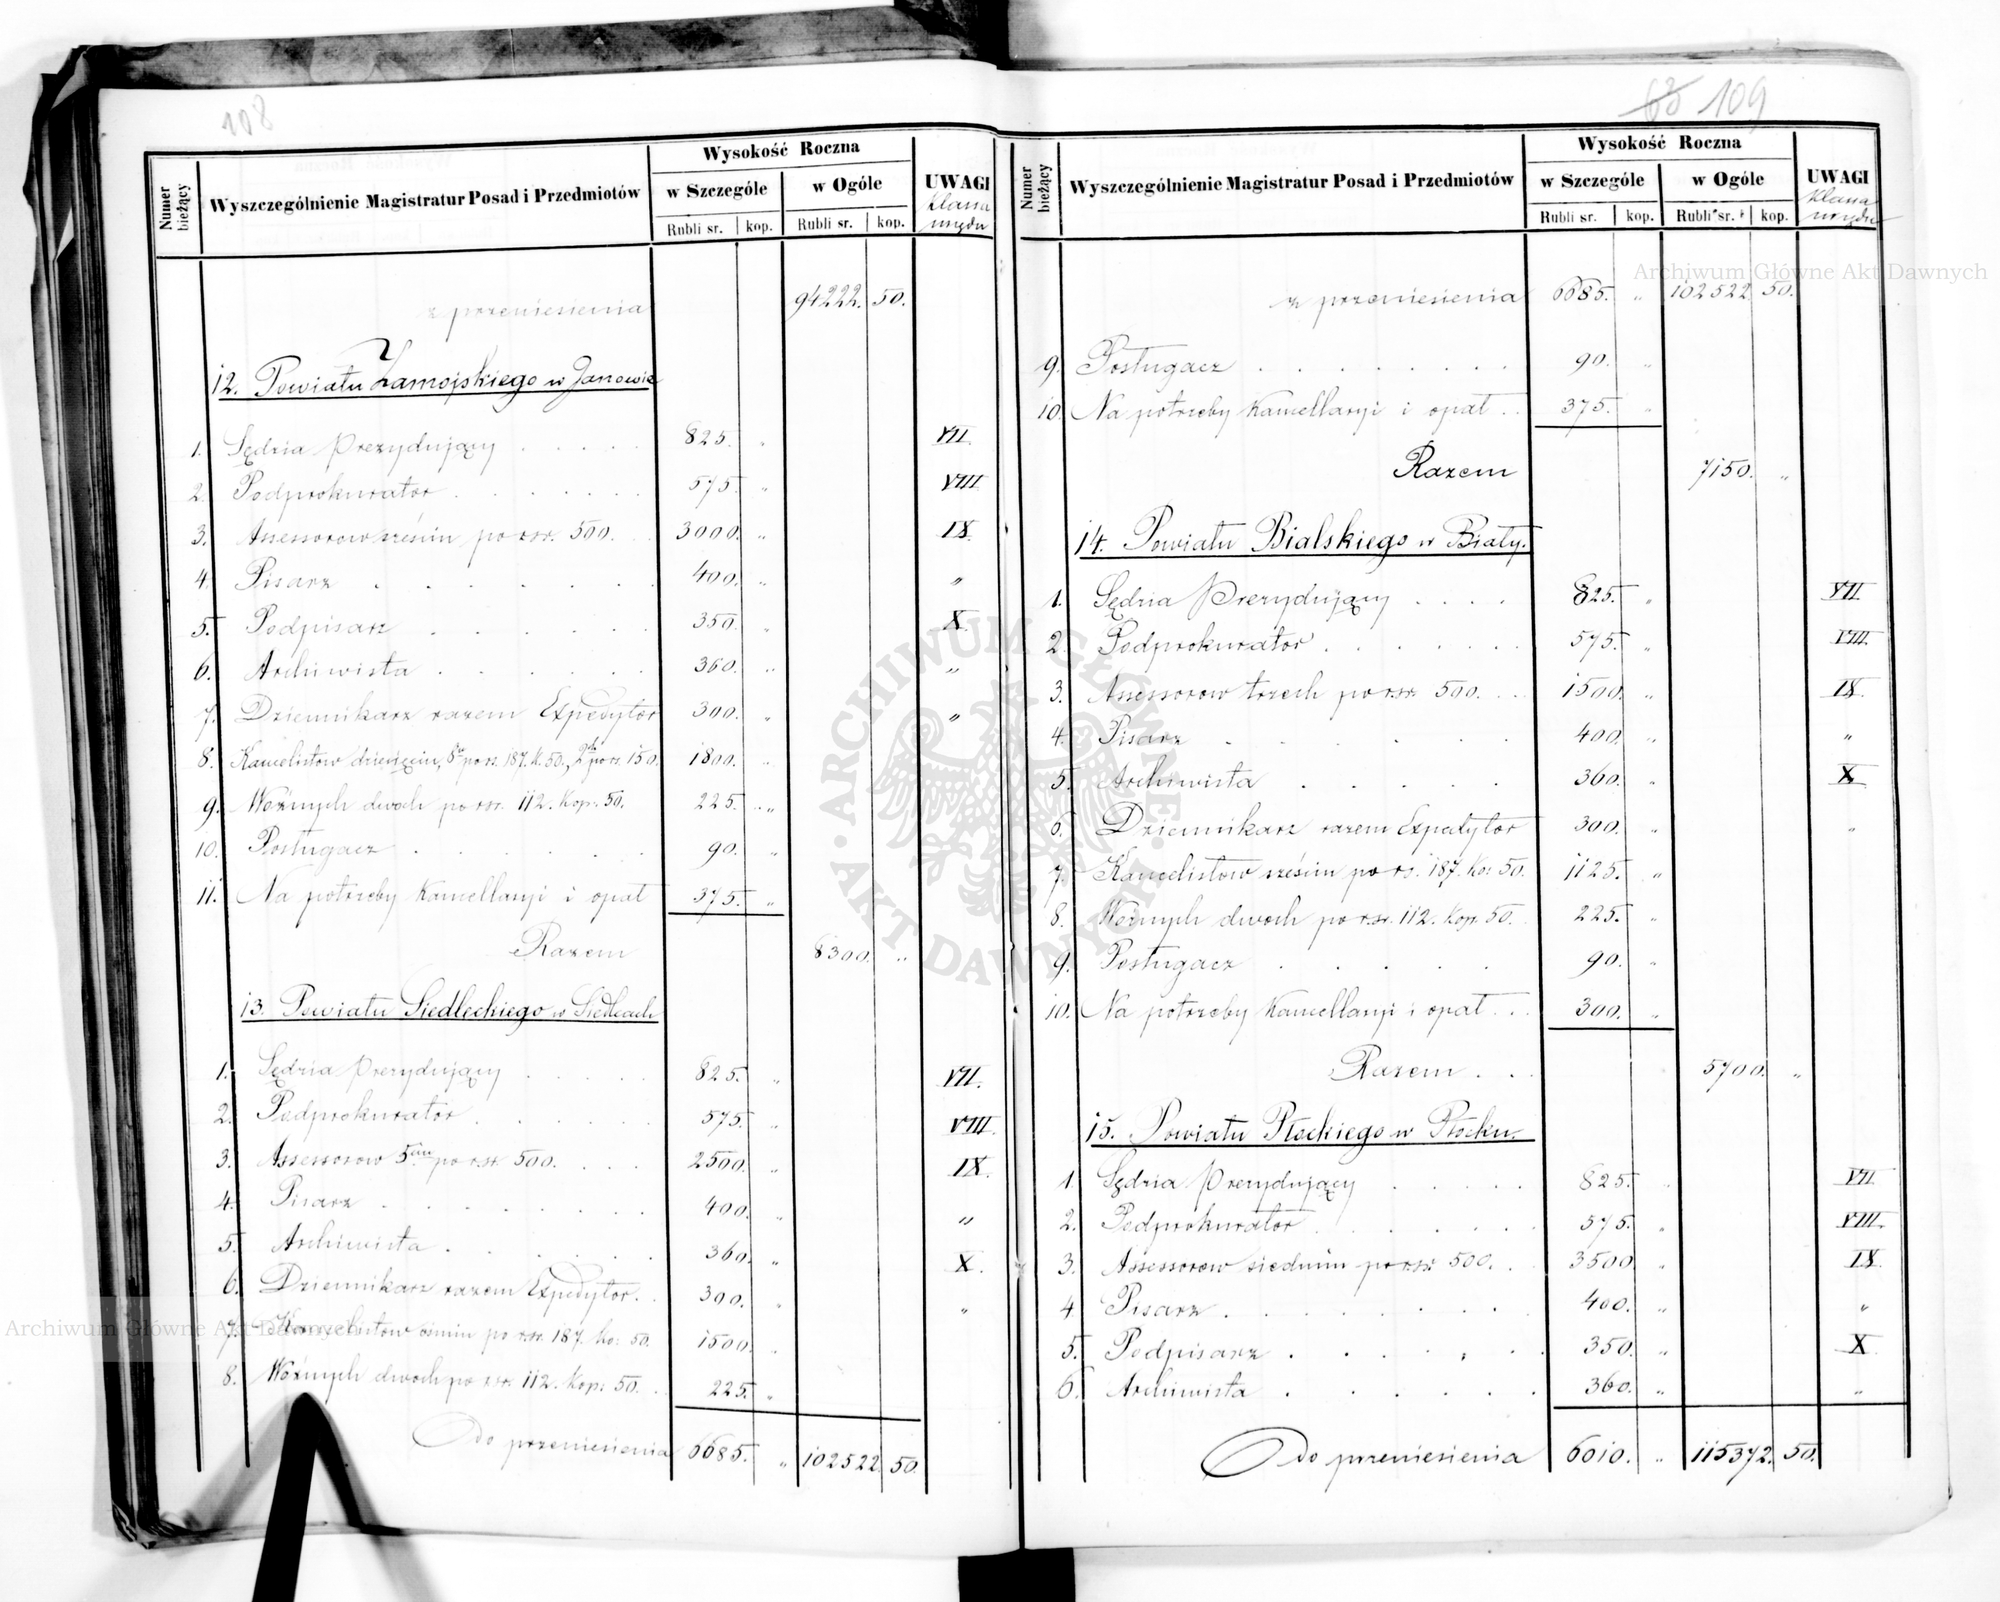 108
Numer bieżący
Wyszczególnienie Magistratur Posad i Przedmiotów
Wysokość Roczna
w Szczególe
w Ogóle
Rubli sr. kop. Rubli sr. kop.
UWAGI
klassa
urzędu
z przeniesienia 94222. 50.
12. Powiatu Zamojskiego w Janowie
1. Sędzia Prezydujący . . . . . 825. " VII
2. Podprokurator . . . . . . 575. " VIII
3. Assessorow sześciu po rsr. 500. . 3000. " IX
4. Pisarz . . . . . . . 400. " "
5. Podpisarz . . . . . . 350. " X
6. Archiwista . . . . . . 360. " "
7. Dziennikarz razem Expedytor 300. " "
8. Kancelistow dziesięciu, 8u po rs. 187. k. 50., 2ch po rs. 150. 1800. "
9. Woźnych dwóch po rsr. 112. Kop. 50. 225. "
10. Posługacz . . . . . . 90. "
11. Na potrzeby Kancellaryi i opał 375. "
Razem 8300. "
13. Powiatu Siedleckiego w Siedlcach
1. Sędzia Prezydujący . . . . . 825. " VII.
2. Podprokurator . . . . . . 575. " VIII.
3. Assessorow 5ciu po rsr. 500. . . . 2500. " IX.
4. Pisarz . . . . . . . . 400. " "
5. Archiwista . . . . . . 360. " X.
6. Dziennikarz razem Expedytor. . 300. " "
7. Kancelistow ośmiu po rsr. 187. ko: 50. 1500. "
8. Woźnych dwoch po rsr. 112. Kop: 50. . 225. "
Do przeniesienia 6685. " 102522. 50.
63 109
Numer bieżący
Wyszczególnienie Magistratur Posad i Przedmiotów
Wysokość Roczna
w Szczególe
w Ogóle
Rubli sr. kop. Rubli sr. kop.
UWAGI
Klassa
urzędu
z przeniesienia 6685. " 102522. 50.
9. Posługacz . . . . . . . . 90. "
10. Na potrzeby Kancellaryi i opał . . 375. "
Razem 7150. "
14. Powiatu Bialskiego w Biały.
1. Sędzia Prezydujący . . . . 825. " VII
2. Podprokurator . . . . . . . 575. " VIII.
3. Assessorow trzech po rsr. 500. . . 1500. " IX.
4. Pisarz . . . . . . . 400. " "
5. Archiwista . . . . . 360. " X
6. Dziennikarz razem Expedytor 300. " "
7. Kancelistow sześciu po rs. 187. Ko: 50. 1125. "
8. Woźnych dwoch po rsr. 112. Kop. 50. . 225. "
9. Posługacz . . . . . 90. "
10. Na potrzeby Kancellaryi i opał . . . 300. "
Razem . . . 5700. "
15. Powiatu Płockiego w Płocku.
1. Sędzia Prezydujący . . . . . 825. " VII
2. Podprokurator . . . . . . 575. " VIII.
3. Assessorow siedmiu po rsr. 500. . . 3500. " IX
4. Pisarz . . . . . . . . 400. " "
5. Podpisarz . . . . . . 350. " X
6. Archiwista . . . . . . 360. " "
Do przeniesienia 6010. " 115372. 50.
Archiwum Główne Akt Dawnych
Archiwum Główne Akt Dawnych
ARCHIWUM GŁÓWNE AKT DAWNYCH